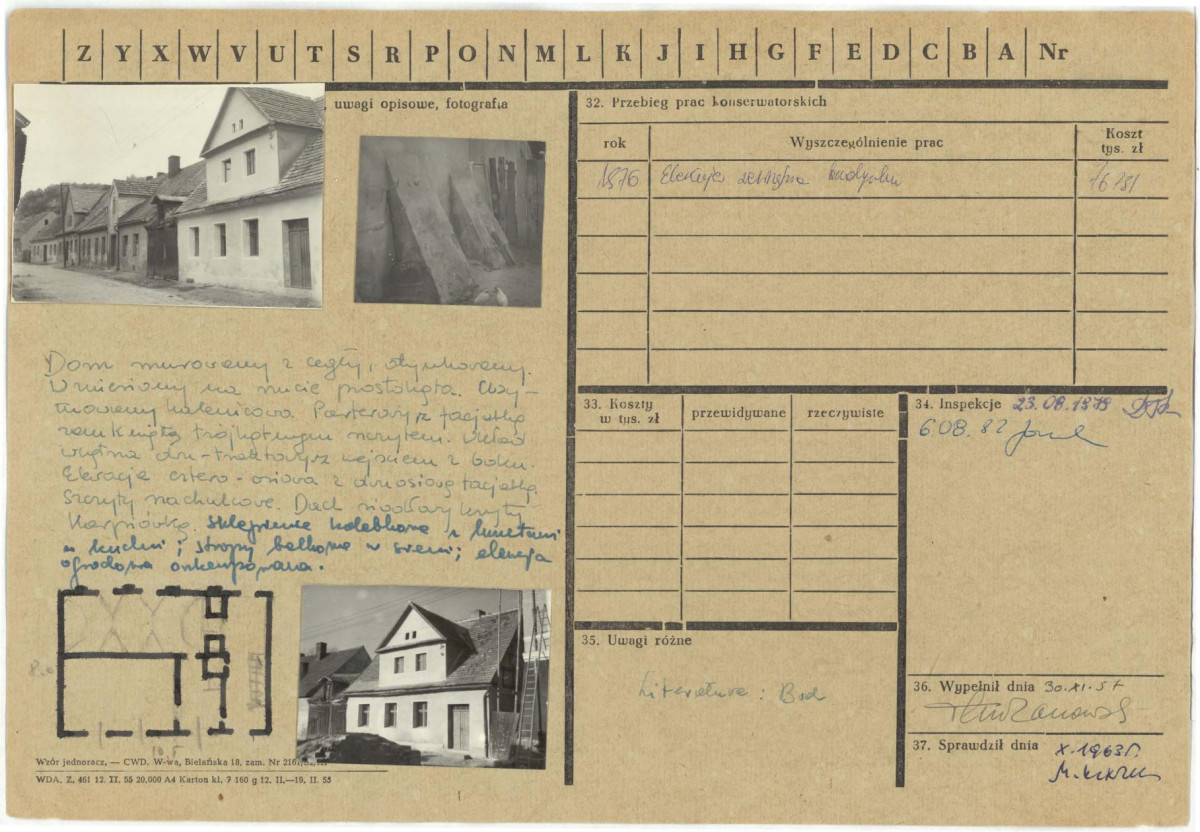 Z Y X W V U T S R P O N M L K J I H G F E D C B A Nr
, uwagi opisowe, fotografia
Dom murowany z cegły, otynkowany.
Wzniesiony na rzucie prostokąta.
Parterowy z facjatką
zamkniętą trójkątnym szczytem. Układ
wnętrza dwu-traktowy z wejściem z boku.
Elewacja cztero-osiowa z dwuosiową facjatką.
Szczyty nachułkowe. Dach siodłowy kryty
karpiówką. sklepienie kolebkowe z lunetami
w kuchni; stropy belkowe w sieni; elewacja
ogrodowa
8.0
10.5
Wzór jednoraz., — CWD. W-wa, Bielańska 18, zam. Nr
WDA. Z. 461 12. II. 55 20.000 A4 Karton kl. 7 160 g 12. II.—19. II. 55
32. Przebieg prac konserwatorskich
rok
Wyszczególnienie prac
Koszt
tys. zł
1976 Elewacja zewnętrzna budynku
33. Koszty
w tys. zł
przewidywane
rzeczywiste
34. Inspekcje 23.08.1979
6.08.82
35. Uwagi różne
Literatura:
36. Wypełnił dnia 30.XI.57
37. Sprawdził dnia X.1963r.